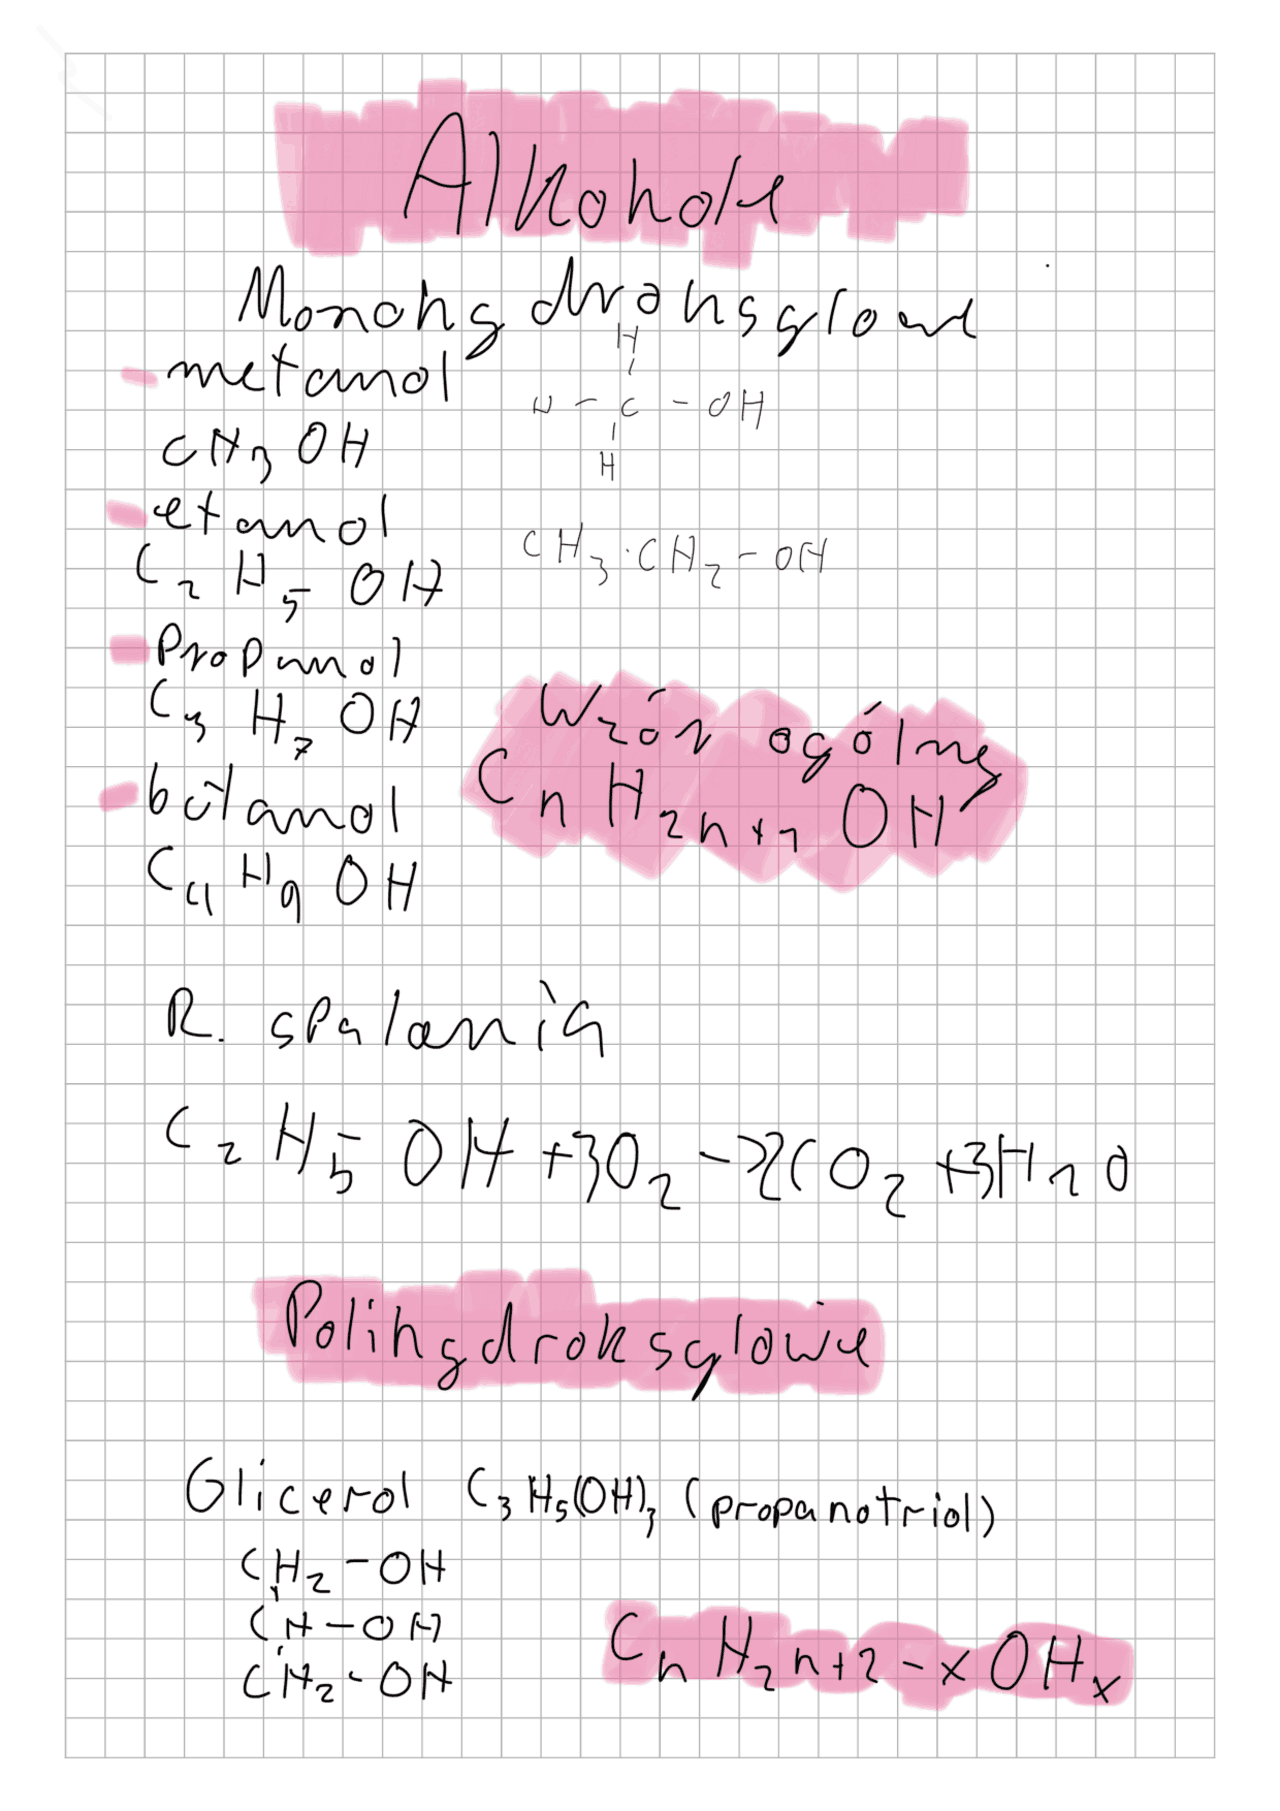 Alkohole
Monohydroksylowe
- metanol
CH₃OH
H
H - C - OH
H
- etanol
C₂H₅OH
CH₃·CH₂-OH
- Propanol
C₃H₇OH
- butanol
C₄H₉OH
Wzór ogólny
CₙH₂ₙ₊₁OH
R. spalania
C₂H₅OH+3O₂->2CO₂+3H₂O
Polihydroksylowe
Glicerol C₃H₅(OH)₃ (propanotriol)
CH₂-OH
CH-OH
CH₂-OH
CₙH₂ₙ₊₂₋ₓOHₓ